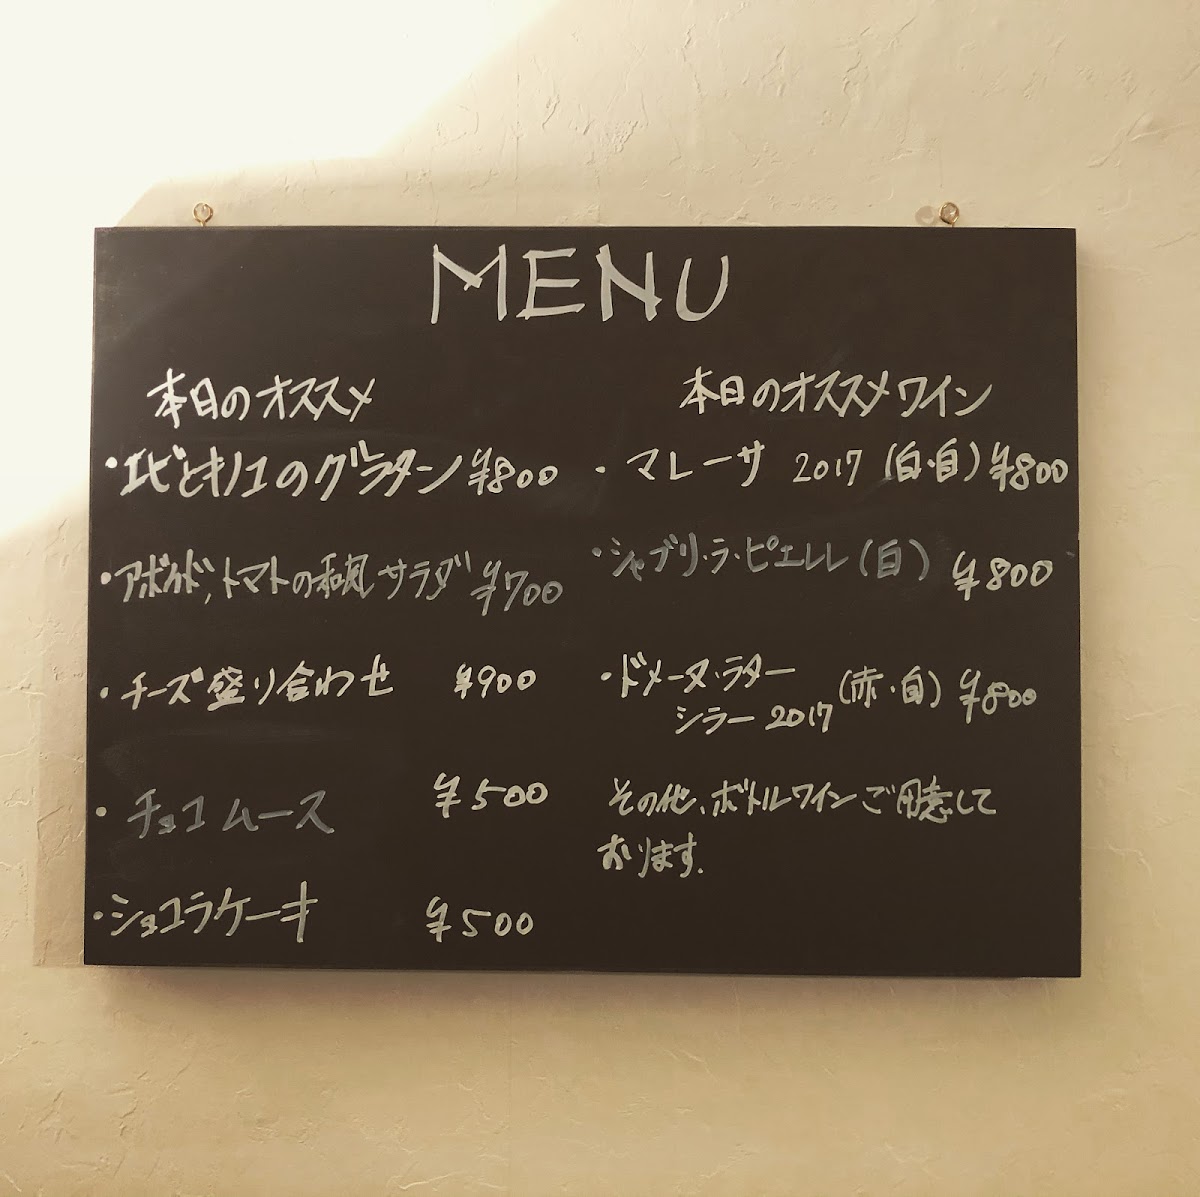 MENU
本日のオススメ
・エビとキノコのグラタン ¥800
・アボカド、トマトの和風サラダ ¥700
・チーズ盛り合わせ ¥900
・チョコムース ¥500
・ショコラケーキ ¥500
本日のオススメワイン
・マレーサ 2017 (白・自) ¥800
・シャブリ・ラ・ピエレレ (白) ¥800
・ドメーヌ・ラター
シラー 2017 (赤・自) ¥800
その他、ボトルワインご用意して
おります.